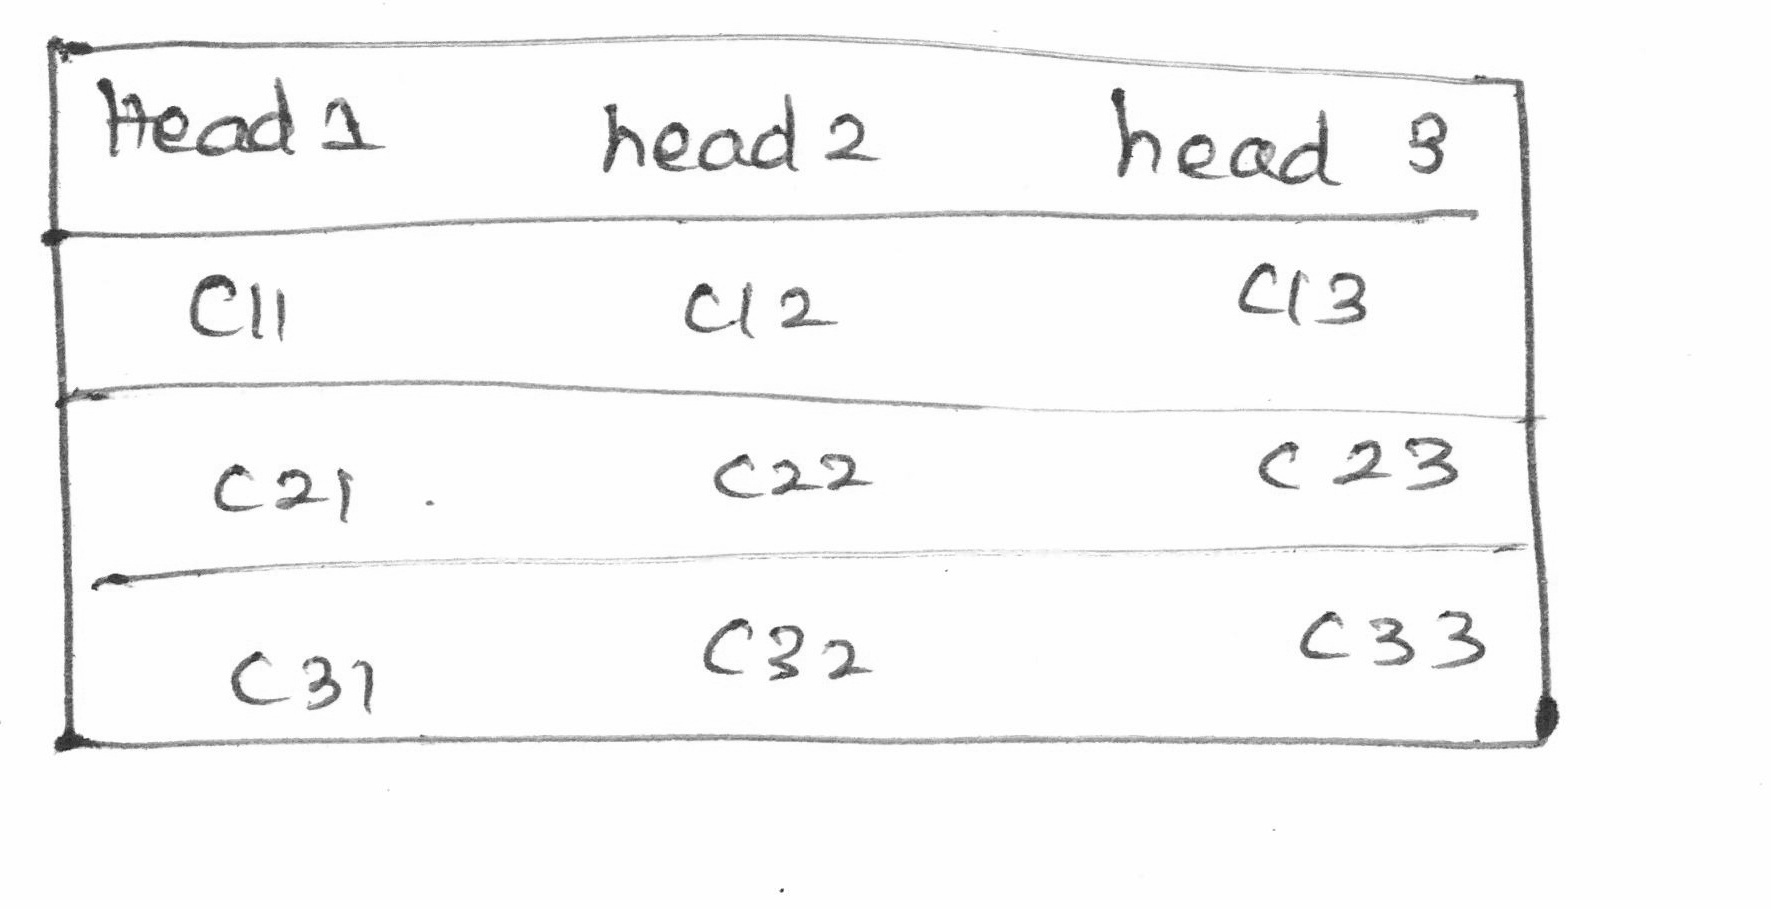 Head 1 head 2 head 3
C11 C12 C13
C21 C22 C23
C31 C32 C33